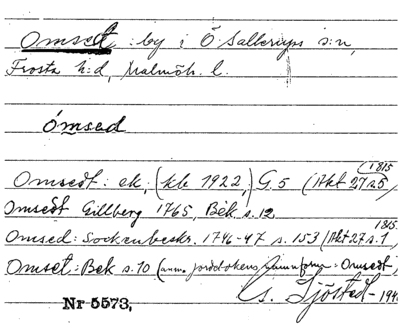 Omsett: by i Ö. Sallerups s:n,
Frosta h:d, Malmöh. l.
Òmsed
Omsedt: ek. (kb 1922,) G. 5 (Akt 27 a5) 1815
Omsedt Gillberg 1765, Bék s. 12
Omsed: Sockenbeskr. 1746-47 s. 153 (Akt 27 s. 1, 1815
Omset: Bék s. 10 (anm. jordebokens namnform: Omsedt)
G. Sjöstedt - 194
Nr 5573,